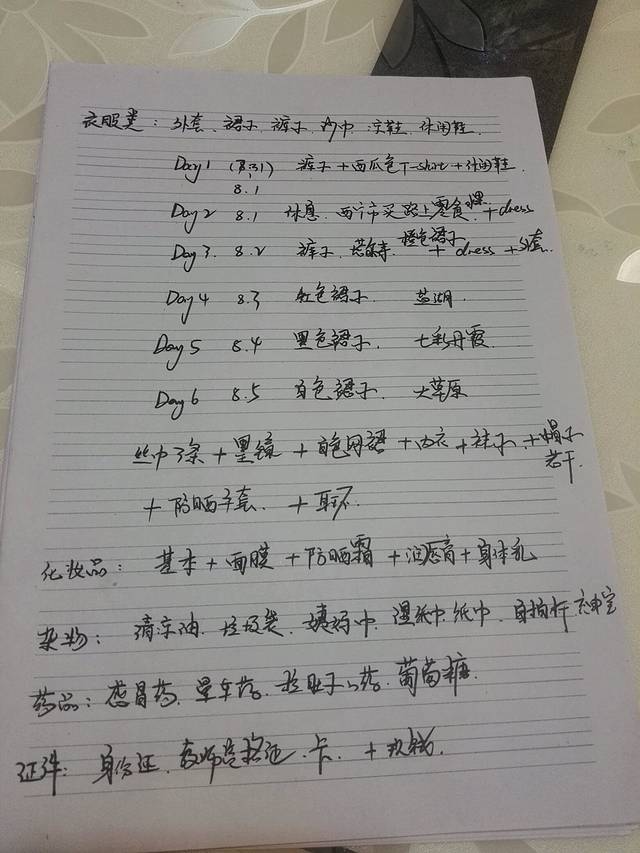 衣服类：外套、裙子、裤子、内巾、凉鞋、休闲鞋、
Day1 (7.31) 裤子+西瓜色T-shirt+休闲鞋.
8.1
Day2 8.1 休息. 西宁市买路上零食、+dress
Day3. 8.2 裤子. 塔尔寺. 橙色裙子 + dress +外套.
Day4 8.3 红色裙子. 盐湖.
Day5 8.4 黑色裙子. 七彩丹霞.
Day6 8.5 白色裙子. 大草原
丝巾3条+墨镜+白色网裙+内衣+袜子.+帽子若干.
+防晒手套. +耳环.
化妆品：基本+面膜+防晒霜+润唇膏+身体乳
杂物：清凉油、垃圾袋、姨妈巾、湿纸巾、纸巾、自拍杆
药品：感冒药、晕车药、拉肚子药、葡萄糖.
证件：身份证、教师资格证、卡、+现钱.